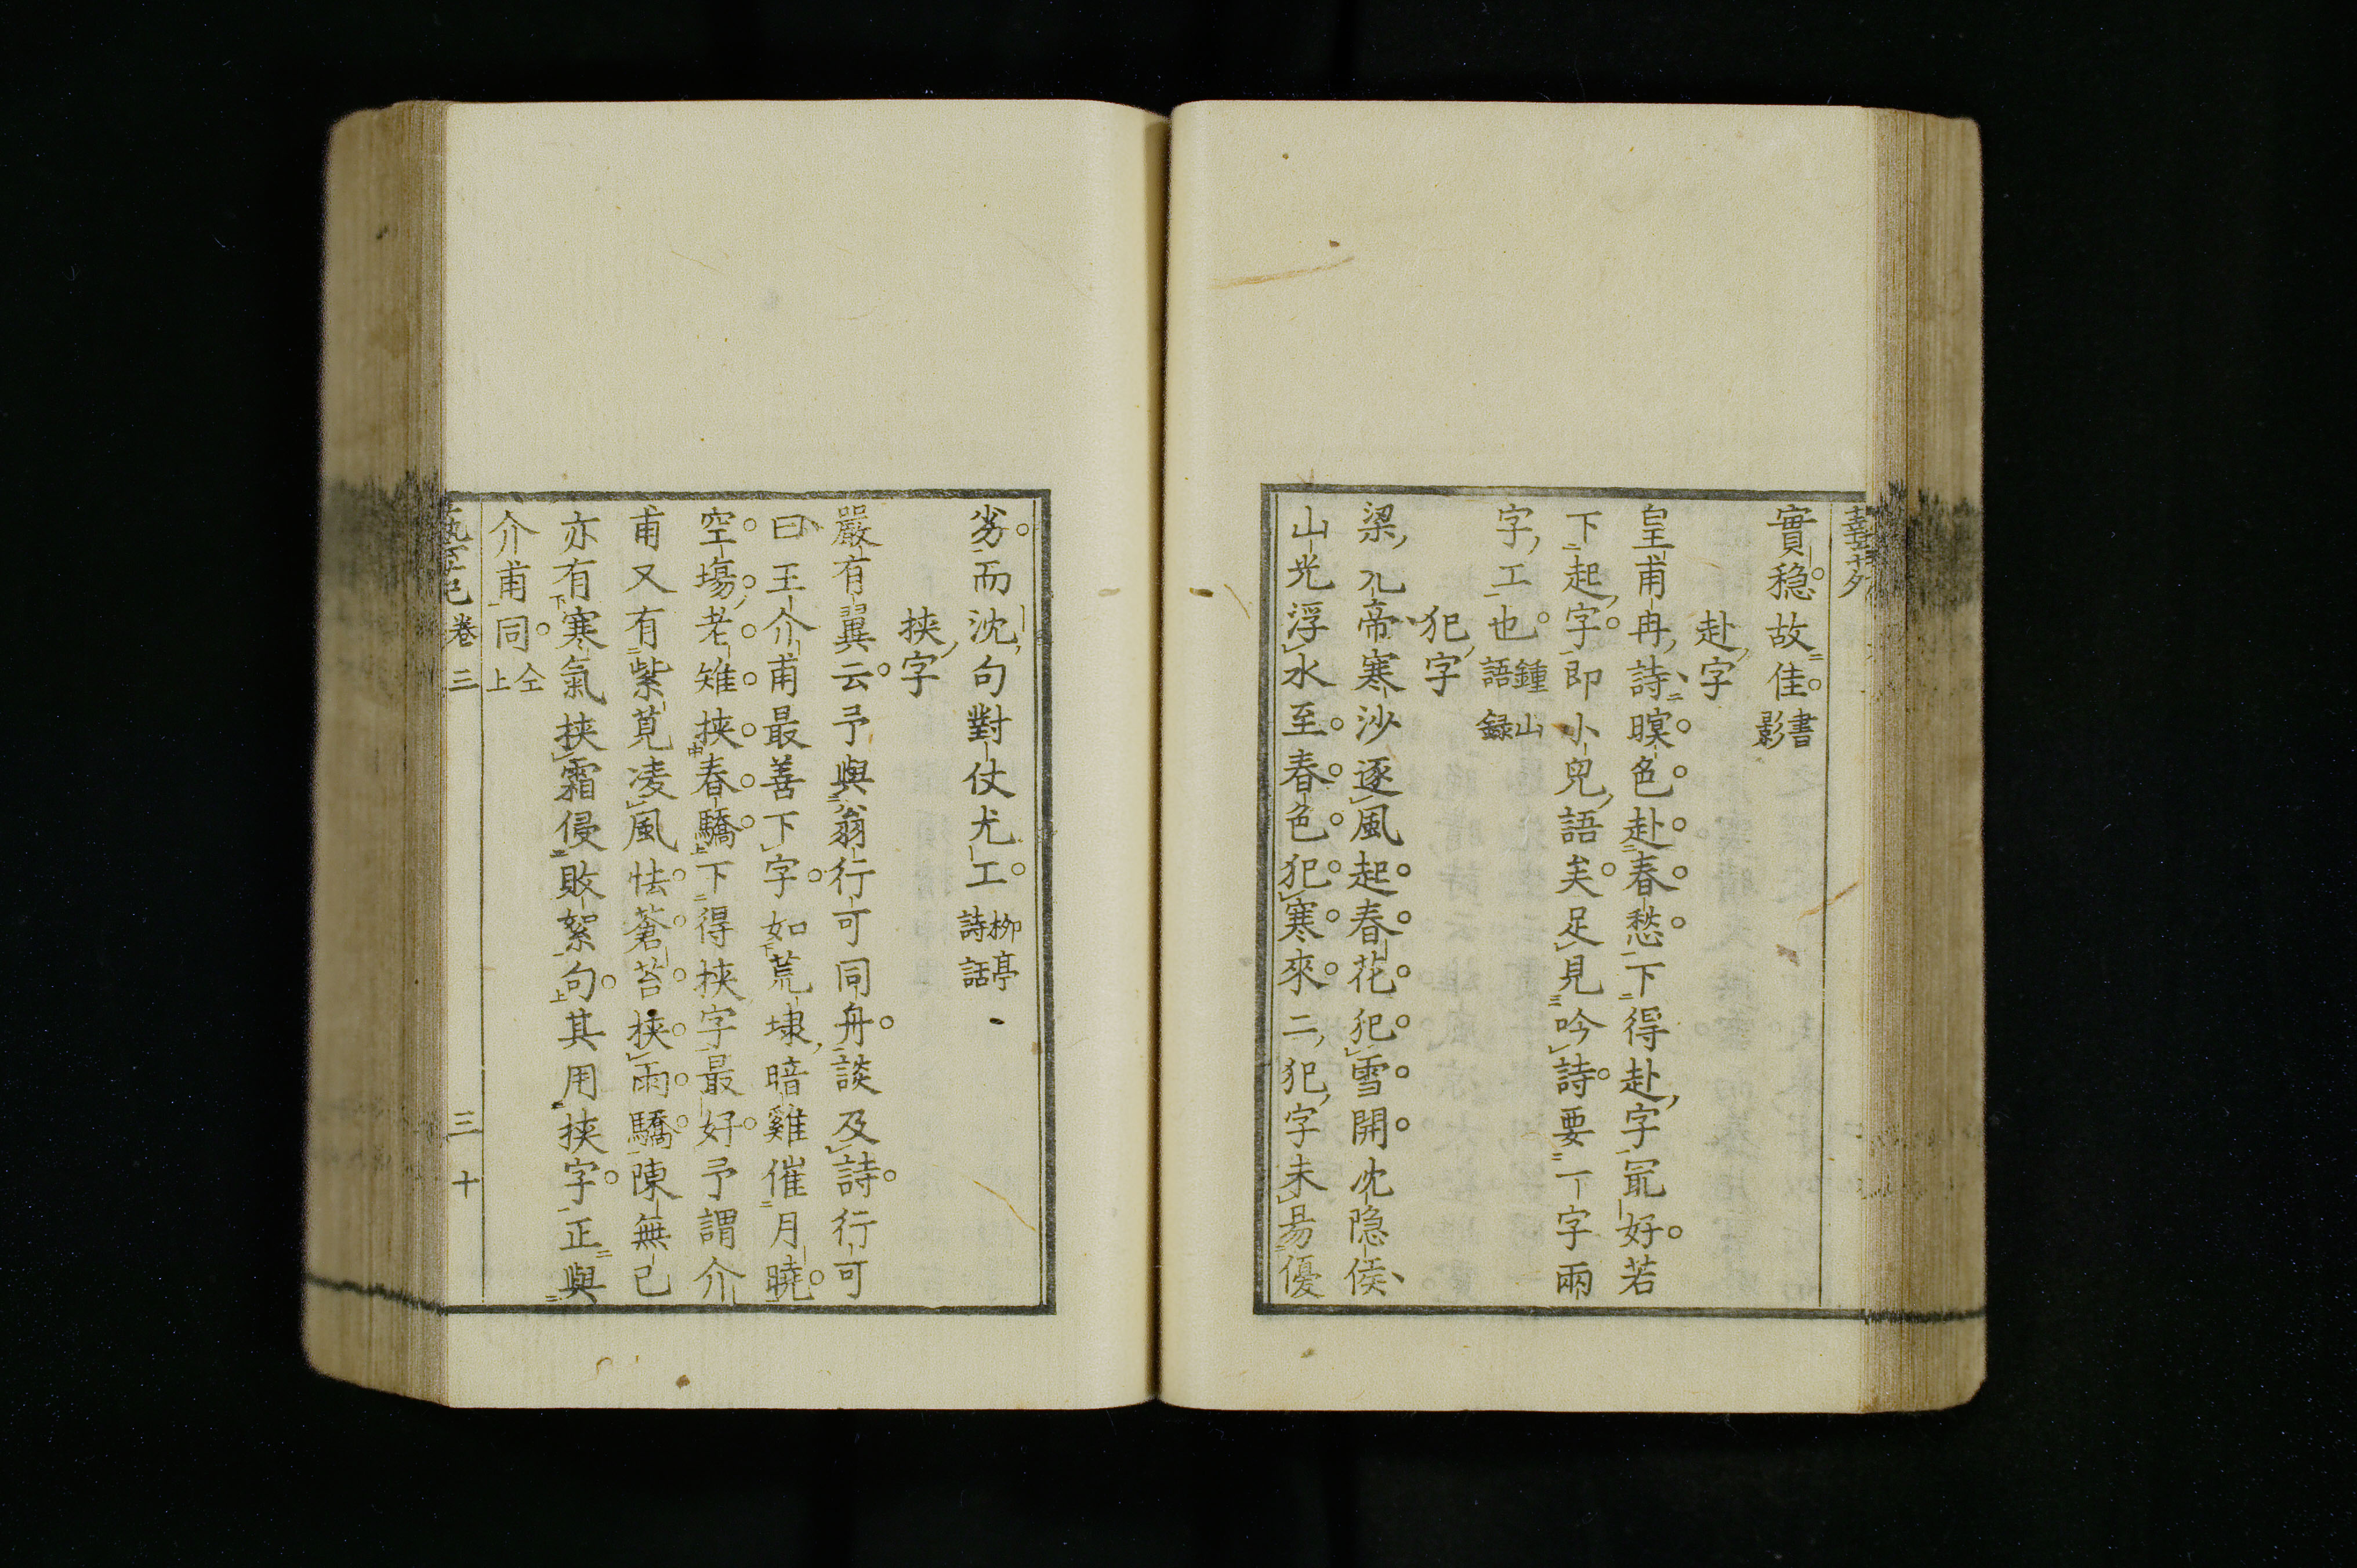 實穏故佳書影
赴字
皇甫冉詩暝色赴春愁下得赴字冣好若
下起字即小兒語矣足見吟詩要一字兩
字工也鍾山語録
犯字
梁元帝寒沙逐風起春花犯雪開沈隐侯
山光浮水至春色犯寒來二犯字未昜優
劣而沈句對仗尤工栁亭詩話
挟字
嚴有翼云予與翁行可同舟談及詩行可
曰王介甫最善下字如荒埭暗雞催月曉
空塲老雉挟春驕下得挟字最好予謂介
甫又有紫莧凌風怯蒼苔挟雨驕陳無己
亦有寒氣挟霜侵敗絮句其用挟字正與
介甫同仝上
卷三
三十